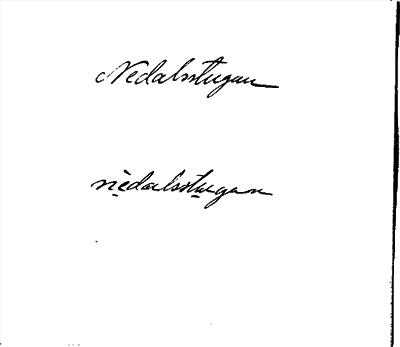 Nedalsstugan
nèdalsstu̱gan